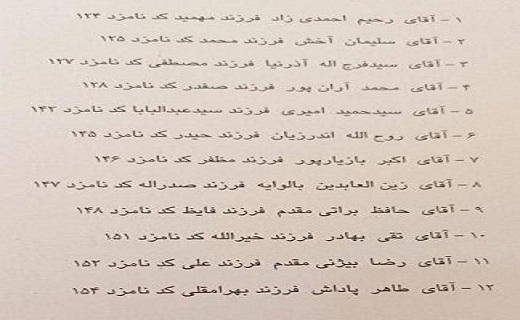 ۱ – آقای رحیم احمدی زاد فرزند مهمید کد نامزد ۱۲۴
۲ – آقای سلیمان آخش فرزند محمد کد نامزد ۱۲۵
۳ – آقای سیدفرج اله آذرنیا فرزند مصطفی کد نامزد ۱۲۷
۴ – آقای محمد آران پور فرزند صفدر کد نامزد ۱۲۸
۵ – آقای سیدحمید امیری فرزند سیدعبدالبابا کد نامزد ۱۴۲
۶ – آقای روح الله اندرزیان فرزند حیدر کد نامزد ۱۴۵
۷ – آقای اکبر بازیارپور فرزند مظفر کد نامزد ۱۴۶
۸ – آقای زین العابدین بالوایه فرزند صدراله کد نامزد ۱۴۷
۹ – آقای حافظ براتی مقدم فرزند فایظ کد نامزد ۱۴۸
۱۰ – آقای تقی بهادر فرزند خیرالله کد نامزد ۱۵۱
۱۱ – آقای رضا بیژنی مقدم فرزند علی کد نامزد ۱۵۲
۱۲ – آقای طاهر پاداش فرزند بهرامقلی کد نامزد ۱۵۴